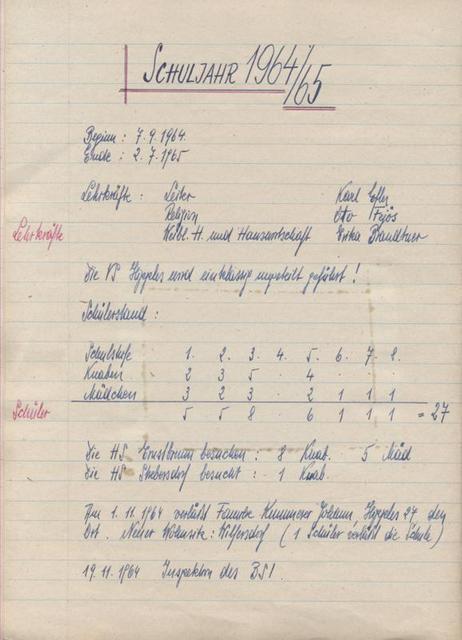 SCHULJAHR 1964/65
Beginn : 7.9.1964.
Ende : 2.7.1965
Lehrkräfte : Leiter Karl
Religion Otto Fejös
Lehrkräfte Weibl. H. und Hauswirtschaft Erika Brandtner
Die VS Hipples wird einklassig ungeteilt geführt !
Schülerstand :
Schulstufe 1. 2. 3. 4. 5. 6. 7. 8.
Knaben 2 3 5 . 4 . . .
Mädchen 3 2 3 . 2 1 1 1
Schüler 5 5 8 6 1 1 1 = 27
Die HS Ernstbrunn besuchen : 8 Knab. 5 Mäd
Die HS besucht : 1 Knab.
Am 1.11.1964 verläßt Familie Johann, Hipples 27 den
Ort. Neuer Wohnsitz : Wilfersdorf (1 Schüler verläßt die Schule)
19.11.1964 Inspektion des BSI.